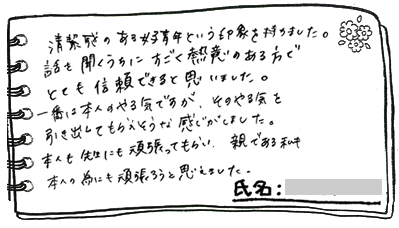 清潔感のある好青年という印象を持ちました。
話を聞くうちに すごく熱意のある方で
とても信頼できると思いました。
一番は本人のやる気ですが、そのやる気を
引き出してもらえそうな感じがしました。
本人も先生にも頑張ってもらい、親である私も
本人の為にも頑張ろうと思えました。
氏名: